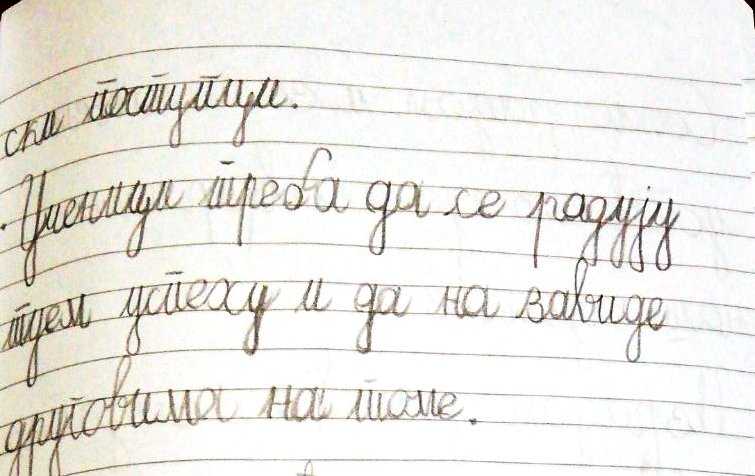 ски поступци.
Ученици треба да се радују
туђем успеху и да на завиде
друговима на томе.